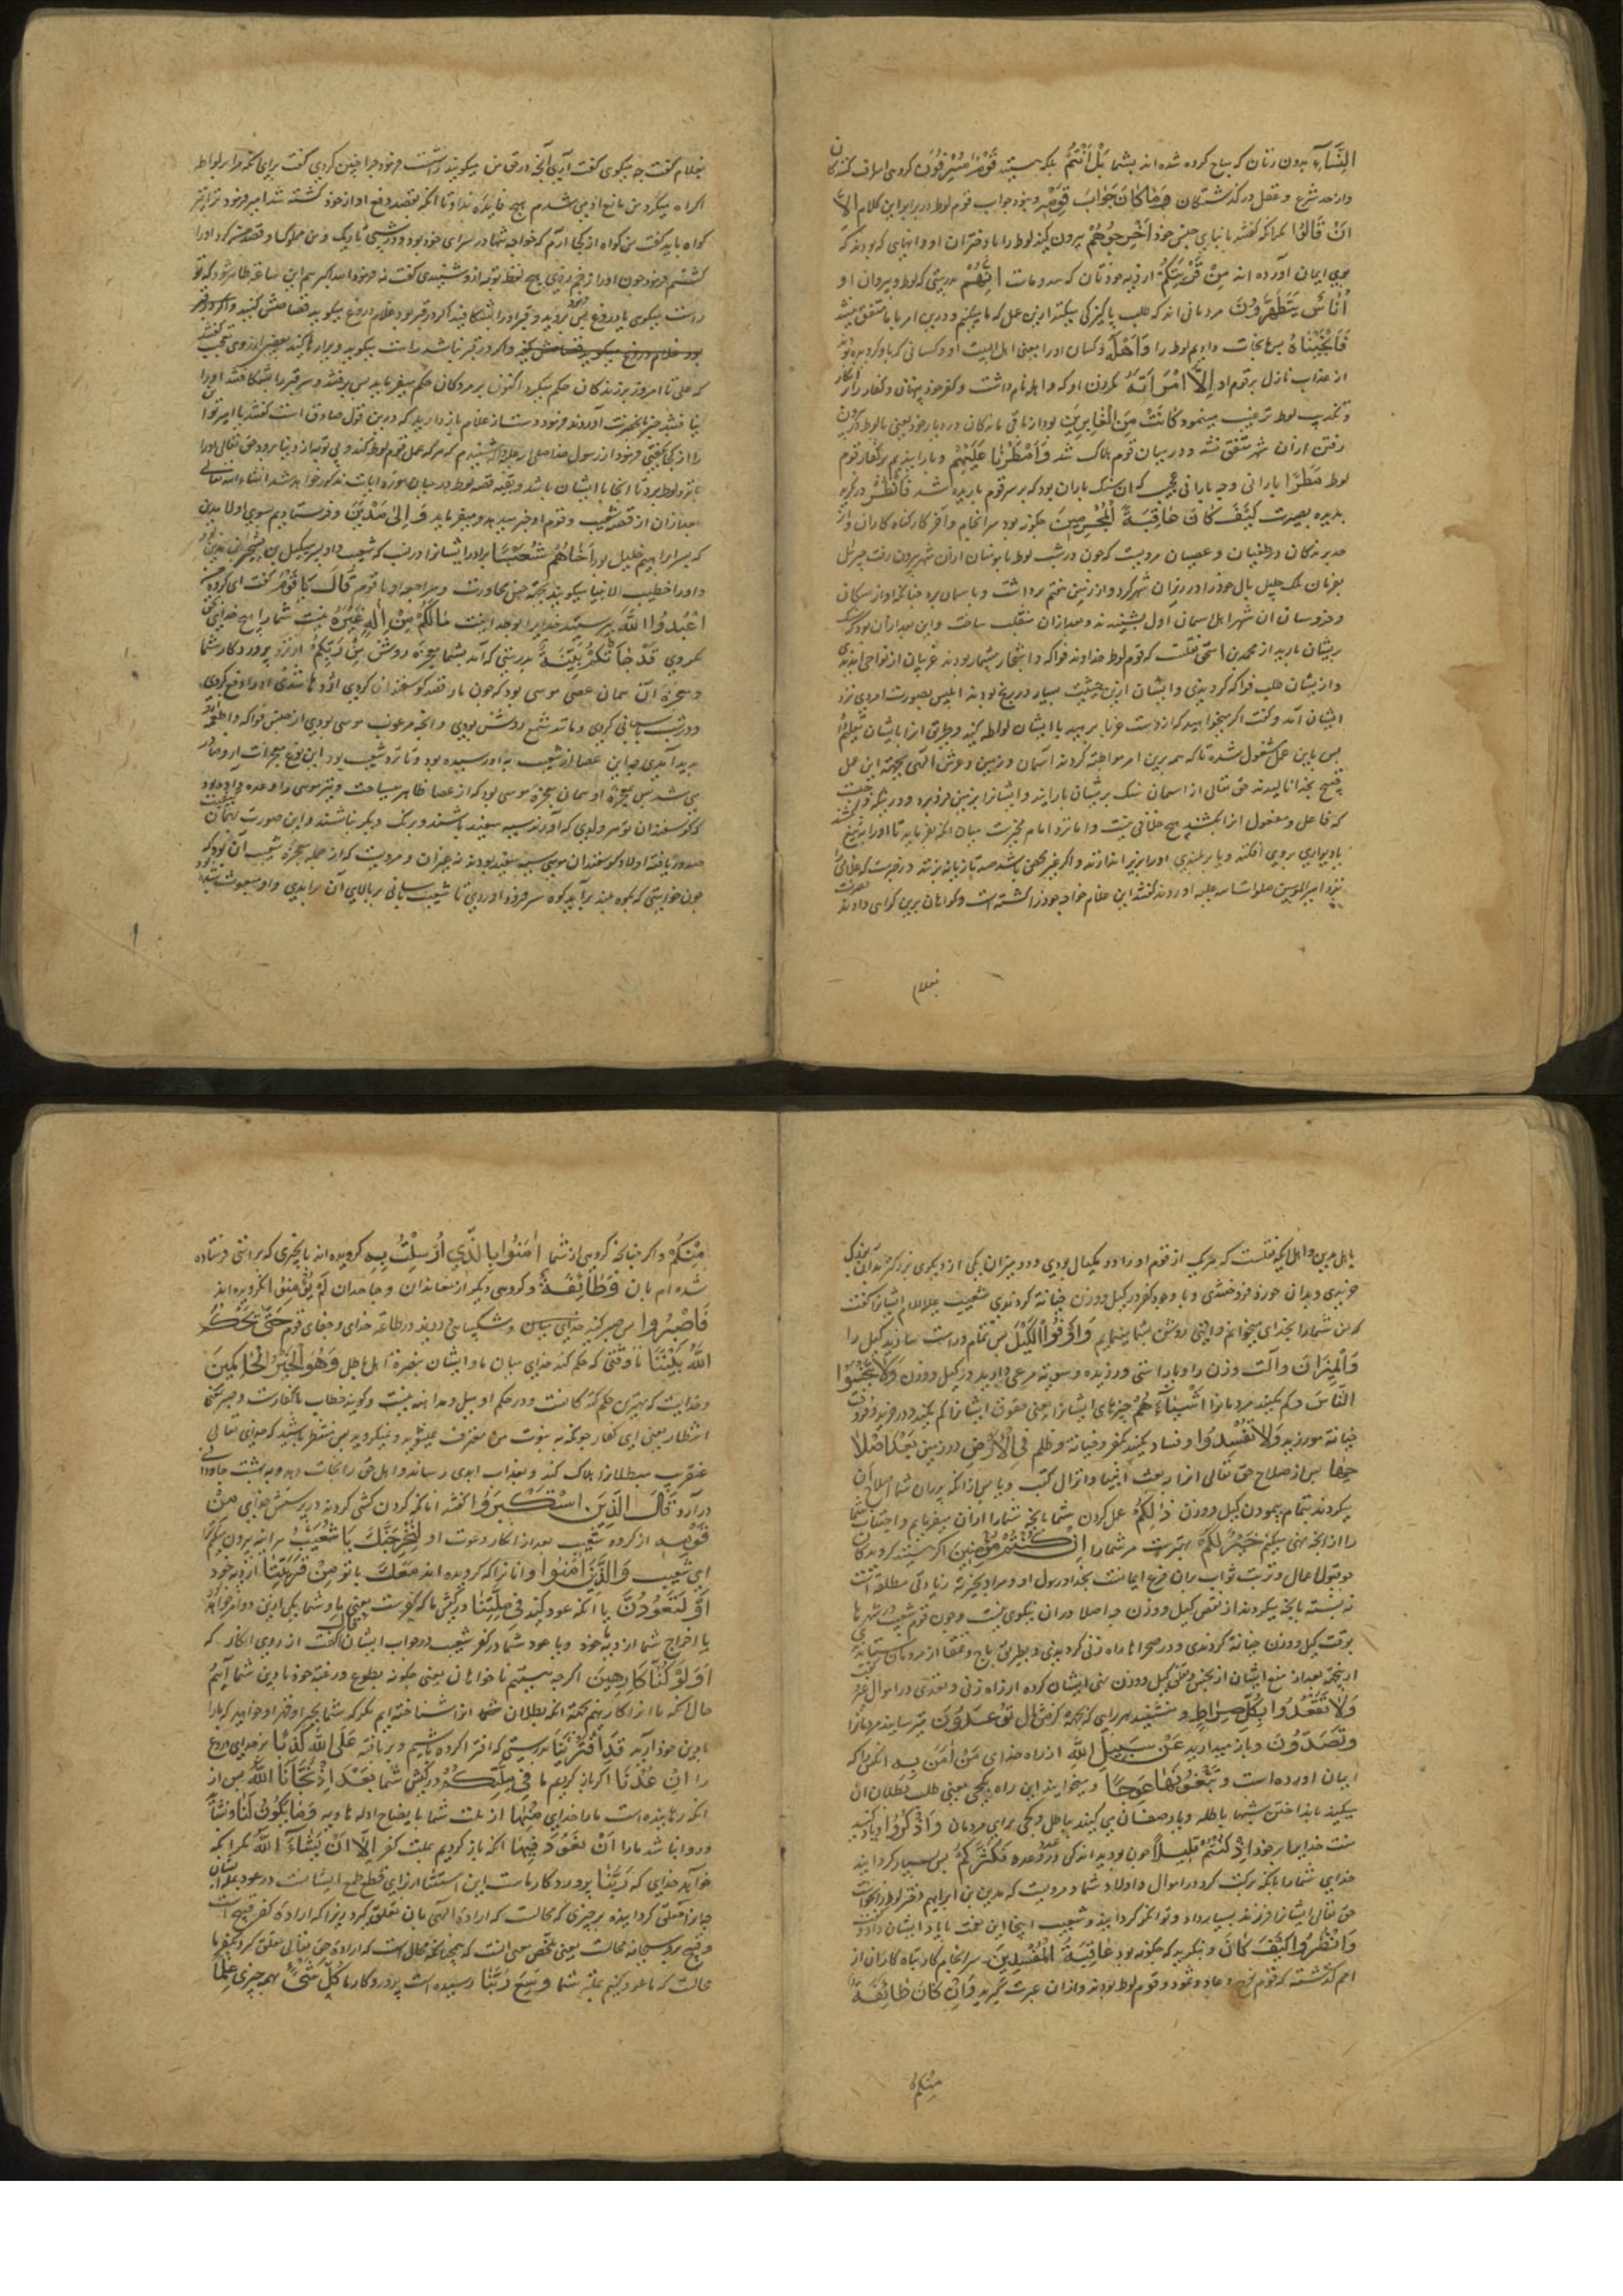 النِّسَاءِ بدون زنان که مباح کرده شده اند بشما بَلْ اَنْتُمْ بلکه هستید قَوْمٌ مُسْرِفُونَ کروهی اسراف کنندکان
واز حد شرع و عقل در کذشتکان وَمَا كَانَ جَوَابَ قَوْمِهِ ونبود جواب قوم لوط در برابر این کلام اِلَّا
اَنْ قَالُوا مکر آنکه کفتند با نبای جنس خود اَخْرِجُوهُمْ بیرون کنید لوط را با دختران او وانهایی که بودند که
بوی ایمان آورده اند مِنْ قَرْيَتِكُمْ از دیه خودتان که سدومست اِنَّهُمْ بدرستی که لوط و پیروان او
اُنَاسٌ يَتَطَهَّرُونَ مردمانی اند که طلب پاکیزکی میکنند ازین عمل که ما میکنیم ودرین امر با ما متفق نیستند
فَاَنْجَيْنَاهُ پس ما نجات دادیم لوط را وَاَهْلَهُ وکسان او را یعنی اهل البیت او وکسانی که باو کرویده بودند
از عذاب نازل بر قوم او اِلَّا امْرَاَتَهُ مکر زن او که واهله نام داشت وکفر خود پنهان وکفار را بر انکار
وتکذیب لوط ترغیب مینمود كَانَتْ مِنَ الْغَابِرِينَ بود از باقی ماندکان در دیار خود یعنی با لوط در بیرون
رفتن از ان شهر متفق نشد ودر میان قوم هلاک شد وَاَمْطَرْنَا عَلَيْهِمْ وبارانیدیم بر کفار قوم
لوط مَطَرًا بارانی وچه بارانی عجیب که ان سنک باران بود که بر سر قوم باریده شد فَانْظُرْ در نکر
بدیده بصیرت كَيْفَ كَانَ عَاقِبَةُ الْمُجْرِمِينَ چکونه بود سرانجام وآخر کار کناه کاران واز
حد برندکان در طغیان وعصیان مرویست که چون در شب لوط با مومنان از ان شهر بیرون رفت جبرئیل
بفرمان ملک جلیل بال خود را در زیر ان شهر کرد واز زمین هفتم برداشت وباسمان برد چنانکه اواز سکان
وخروسان ان شهر اهل اسمان اول بشنیدند وبعد از ان منقلب ساخت
بریشان بارید از محمد بن اسحق نقلست که قوم لوط خداوند فواکه واشجار بیشمار بودند غریبان از نواحی امدندی
واز یشان طلب فواکه کردندی وایشان ازین حیثیت بسیار در رنج بودند ابلیس بصورت امردی نزد
ایشان آمد وکفت اکر میخواهید که از دست غربا برهید با ایشان لواطه کنید وطریق انرا بایشان تعلیم داد
پس باین عمل مشغول شدند تا که همه برین امر مواظبت کردند آسمان وزمین وعرش الهی بجهت این عمل
قبیح بخدا نالیدند حق تعالی از اسمان سنک بریشان بارانید وایشانرا بزمین فرو برد
که فاعل ومفعول انرا بکشند هیچ خلافی نیست واما نزد امام مخیرست میان انکه بفرماید تا او را به تیغ
یا دیواری بروی افکند ویا بر بلندی او را بزیر اندازند واکر غیر محصن باشد صد تازیانه بزنند در خبرست که غلامی را
نزد امیر المومنین صلوات الله علیه اوردند کفتند این غلام خواجه خود را کشته است وکواهان برین کواهی دادند
بغلام
بغلام کفت چه میکوی کفت آری آنچه در حق من میکویند راست فرمود چرا چنین کردی کفت برای انکه مرا بر لواطه
اکراه میکرد من مانع او می شدم هیچ فایده نداد تا انکه بقصد دفع او از خود کشته شد امیر فرمود ترا بر
کواه باید کفت من کواه از کجا ارم که خواجه شما در سرای خود بود ودر شبی تاریک ومن مملوک او
کشتم فرمود چون او را زخم زدی هیچ لفظ توبه ازو شنیدی کفت نه فرمود الله اکبر هم این ساعت ظاهر شود که تو
راست میکوی یا دروغ پس بروید وقبر او را بشکافید اکر در قبر بود غلام دروغ میکوید قصاصش کنید
واکر در قبر نباشد راست میکوید ویرا رها کنید بعضی از روی تعجب کفتند
که علی تا امروز بر زندکان حکم میکرد اکنون بر مردکان حکم میفرماید پس برفتند وسر قبر را شکافتند او را
نیافتند خبر بانحضرت آوردند فرمود دست از غلام باز دارید که درین قول صادقست کفتند یا امیر تو این
را از کجا کفتی فرمود از رسول خدا صلی الله علیه واله شنیدم که هر که عمل قوم لوط کند وبی توبه از دنیا برود حق تعالی او را
نزد لوط برد تا انجا با ایشان باشد وبقیه قصه لوط در میان سوره ایات مذکور خواهد شد انشاء الله تعالی
بعد از ان از قصه شعیب وقوم او خبر میدهد ومیفرماید وَاِلٰى مَدْيَنَ وفرستادیم بسوی اولاد مدین
که پسر ابراهیم خلیل بود اَخَاهُمْ شُعَيْبًا برادر ایشانرا در نسب که شعیب
واو را خطیب الانبیا میکویند بجهت حسن محاورت ومراجعت او با قوم قَالَ يَا قَوْمِ کفت ای کروه من
اعْبُدُوا اللّٰهَ بپرستید خدایرا بوحدانیت مَا لَكُمْ مِنْ اِلٰهٍ غَيْرُهُ نیست شما را هیچ خدای بحق
مکر وی قَدْ جَاءَتْكُمْ بَيِّنَةٌ بدرستی که آمد بشما معجزه روشن مِنْ رَبِّكُمْ از نزد پروردکار شما
ومعجزه آن همان عصای موسی بود که چون مار قصد کوسفندان کردی اژدها شدی او را دفع کردی
ودر شب پاسبانی کردی ومانند شمع روشن بودی
پدید آمدی
می شد پس معجزه او همان معجزه موسی بود که از عصا ظاهر میساخت
که کوسفندان تو هر ولدی که آورند سیه سفید باشند وبرنک دیکر نباشند واین صورت
صدور یافته اولاد کوسفندان موسی سیه سفید بودند نه غیر ان ومرویست که از جمله معجزه شعیب آن بود که
چون خواستی که بکوه بلند برآید کوه سر فرود اوردی تا شعیب باسانی بر بالای آن برآیدی
باهل مدین واهل ایکه نقلست که هر یک از قوم او را دو مکیال بودی ودو میزان یکی از دیکری بزرکتر
خریدی وبدانی خورد فروختندی وبا وجود کفر در کیل ووزن خیانت کردندی شعیب علیه السلام ایشانرا کفت
که من شما را بخدای میخوانم وراهی روشن بشما مینمایم وَاَوْفُوا الْكَيْلَ پس تمام وراست سازید کیل را
وَالْمِيزَانَ وآلت وزن را وبا راستی ورزیده وسویت مرعی دارید در کیل ووزن وَلَا تَبْخَسُوا
النَّاسَ وکم مکنید مردمانرا اَشْيَاءَهُمْ چیزهای ایشانرا یعنی حقوق ایشانرا کم مکنید ودر خرید وفروخت
خیانت مورزید وَلَا تُفْسِدُوا وفساد مکنید بکفر وخیانت وظلم فِي الْاَرْضِ در زمین بَعْدَ اِصْلَا
حِهَا پس از صلاح حق تعالی انرا ببعث انبیا وانزال کتب ویا پس از انکه پدران شما اصلاح ان
میکردند بتمام پیمودن کیل ووزن ذٰلِكُمْ عمل کردن شما بانچه شما را از ان میفرمایم واجتناب شما
را از انچه نهی میکنم خَيْرٌ لَكُمْ بهترست مر شما را اِنْ كُنْتُمْ مُؤْمِنِينَ اکر هستید کروندکان
چو قبول اعمال وترتب ثواب بران فرع ایمانست بخدا ورسول او ومراد بخیریت زیادتی مطلقه است
نه نسبت بانچه میکردند از نقص کیل ووزن چه اصلا در ان نیکوی نیست وچون قوم شعیب در شهر ها
بوقت کیل ووزن خیانت کردندی ودر صحراها راه زنی کردندی وبطریق باج وتمغا از مردمان
از بهر ان بعد از منع ایشان از بخس ونقص کیل ووزن نهی ایشان کرده از راه زنی وتعدی در اموال
وَلَا تَقْعُدُوا بِكُلِّ صِرَاطٍ ومنشینید بهر راهی که بجهة کرفتن مال تُوعِدُونَ میترسانید مردمانرا
وَتَصُدُّونَ وباز میدارید عَنْ سَبِيلِ اللّٰهِ از راه خدای مَنْ اٰمَنَ بِهِ انکس را که
ایمان اورده است وَتَبْغُونَهَا عِوَجًا ومیخواهید این راه را کجی یعنی طلب بطلان ان
میکنید بانداختن شبهای باطله ویا وصف ان می کنید بباطل وکجی برای مردمان وَاذْكُرُوا ویاد کنید
منت خدایرا بر خود اِذْ كُنْتُمْ قَلِيلًا چون بودید اندکی در عدد وعده فَكَثَّرَكُمْ پس بسیار کردانید
خدای شما را بانکه برکت کرد در اموال واولاد شما ومرویست که مدین بن ابراهیم دختر لوط را بخواست
حق تعالی ایشانرا فرزند بسیار داد وتوانکر کردانید وشعیب اینجا این نعمت بایاد ایشان داد وکفت
وَانْظُرُوا كَيْفَ كَانَ وبنکرید که چکونه بود عَاقِبَةُ الْمُفْسِدِينَ سرانجام کار تباه کاران از
امم کذشته که قوم نوح وعاد وثمود وقوم لوط بودند واز ان عبرت کیرید وَاِنْ كَانَ طَائِفَةٌ
منکم
مِنْكُمْ واکر چنانچه کروهی از شما اٰمَنُوا بِالَّذِي اُرْسِلْتُ بِهِ کرویده اند بانچیزی که براستی فرستاده
شده ام بان وَطَائِفَةٌ وکروهی دیکر از معاندان وجاحدان لَمْ يُؤْمِنُوا نکرویده اند
فَاصْبِرُوا پس صبر کنید وشکیبای ورزید در طاعت خدای وجفای قوم حَتّٰى يَحْكُمَ
اللّٰهُ بَيْنَنَا تا وقتی که حکم کند خدای میان ما وایشان بنصرت اهل حق بر اهل باطل وَهُوَ خَيْرُ الْحَاكِمِينَ
وخدایست که بهترین حکم کنندکانست ودر حکم او میل ومداهنه نیست وکویند خطاب با کفارست
انتظار یعنی ای کفار چونکه به نبوت من معترف نمیشوید ونمیکروید پس منتظر باشید که خدای تعالی
عنقریب مبطلانرا هلاک کند وبعذاب ابدی رساند واهل حق را نجات دهد وبه بهشت جاودانی
درآرد قَالَ الَّذِينَ اسْتَكْبَرُوا کفتند انانکه کردن کشی کردند در پرستش خدای مِنْ
قَوْمِهِ از کروه شعیب بعد از انکار دعوت او لَنُخْرِجَنَّكَ يَا شُعَيْبُ هر اینه بیرون میکنم ترا
ای شعیب وَالَّذِينَ اٰمَنُوا وانانرا که کرویده اند مَعَكَ با تو مِنْ قَرْيَتِنَا از دیه خود
اَوْ لَتَعُودُنَّ یا آنکه عود کنید فِي مِلَّتِنَا در کیش ما که کفرست یعنی یکی ازین دو امر
یا اخراج شما از دیه خود ویا عود شما در کفر شعیب در جواب ایشان قَالَ کفت از روی انکار که
اَوَلَوْ كُنَّا كَارِهِينَ اکرچه هستیم ناخواهان یعنی چکونه بطوع ورغبت خود با دین شما آییم
حال انکه ما انرا کارهیم بجهت انکه بطلان شما انرا شناخته ایم مکر که شما بجبر واکراه خواهید که ما را
بدین خود آرید قَدِ افْتَرَيْنَا بدرستی که افترا کرده باشیم وبر بافته عَلَى اللّٰهِ كَذِبًا بر خدای دروغ
را اِنْ عُدْنَا اکر باز کردیم ما فِي مِلَّتِكُمْ در کیش شما بَعْدَ اِذْ نَجَّانَا اللّٰهُ پس از
انکه رهانیده است ما را خدای مِنْهَا از ملت شما بایضاح ادله وَمَا يَكُونُ لَنَا ونشاید
وروا نباشد ما را اَنْ نَعُودَ فِيهَا انکه باز کردیم بملت کفر اِلَّا اَنْ يَشَاءَ اللّٰهُ مکر انکه
خواهد خدای که رَبُّنَا پروردکار ماست این استثنا از برای قطع طمع ایشانست در عود
چه انرا معلق کردانیده بر چیزی که محالست که ارادت الهی بان تعلق کیرد زیرا که ارادت کفر قبیح است
وقبیح برو سبحانه محالست یعنی ملخص معنی انست که همچنانکه محال است که ارادت حق تعالی تعلق کیرد بکفر ما
محالست که ما عود کنیم بملت شما وَسِعَ رَبُّنَا رسیده است پروردکار ما كُلَّ شَيْءٍ بهمه چیزی عِلْمًا